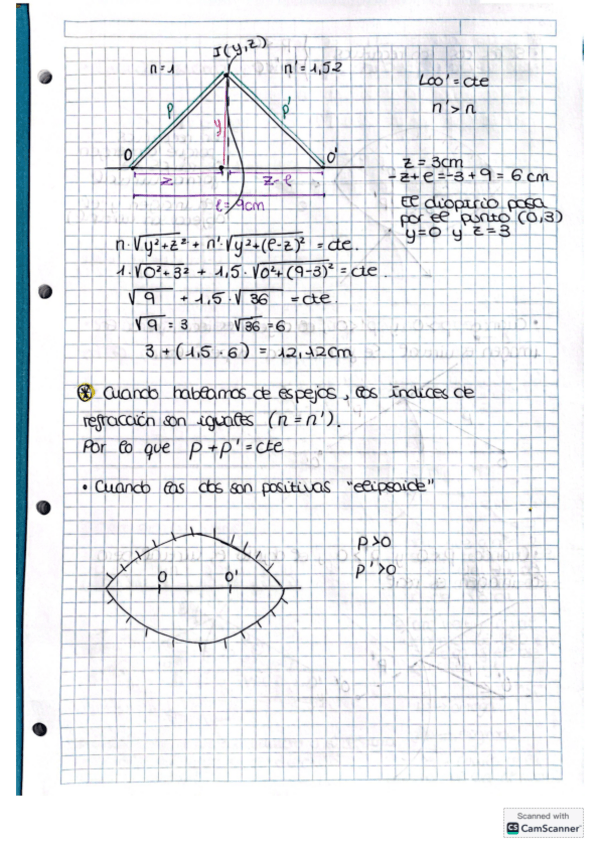 I(y,z)
n=1
n'=1,52
Loo'=cte
n'>n
p
p'
y
O
O'
z
z-l
l=9cm
z=3cm
-z+l=-3+9=6cm
El dioptrio pasa
por el punto (0,3)
y=0 y z=3
n·√y²+z² + n'·√y²+(l-z)² = cte.
1·√0²+3² + 1,5·√0²+(9-3)² = cte.
√9 + 1,5·√36 = cte.
√9 = 3 √36 = 6
3 + (1,5 · 6) = 12,12cm
* Cuando hablamos de espejos, los índices de
refracción son iguales (n=n').
Por lo que p+p'=cte
• Cuando las dos son positivas "elipsoide"
p>0
p'>0
O
O'
Scanned with
CS CamScanner